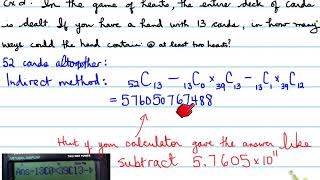 Ex 2. In the game of hearts, the entire deck of cards
is dealt. If you have a hand with 13 cards, in how many
ways could the hand contain @ at least two hearts?
52 cards altogether:
Indirect method: ₅₂C₁₃ − ₁₃C₀ × ₃₉C₁₃ − ₁₃C₁ × ₃₉C₁₂
= 576050767488
But if you calculator gave the answer like
subtract 5.7605 × 10¹¹
Ans-13C1×39C12→